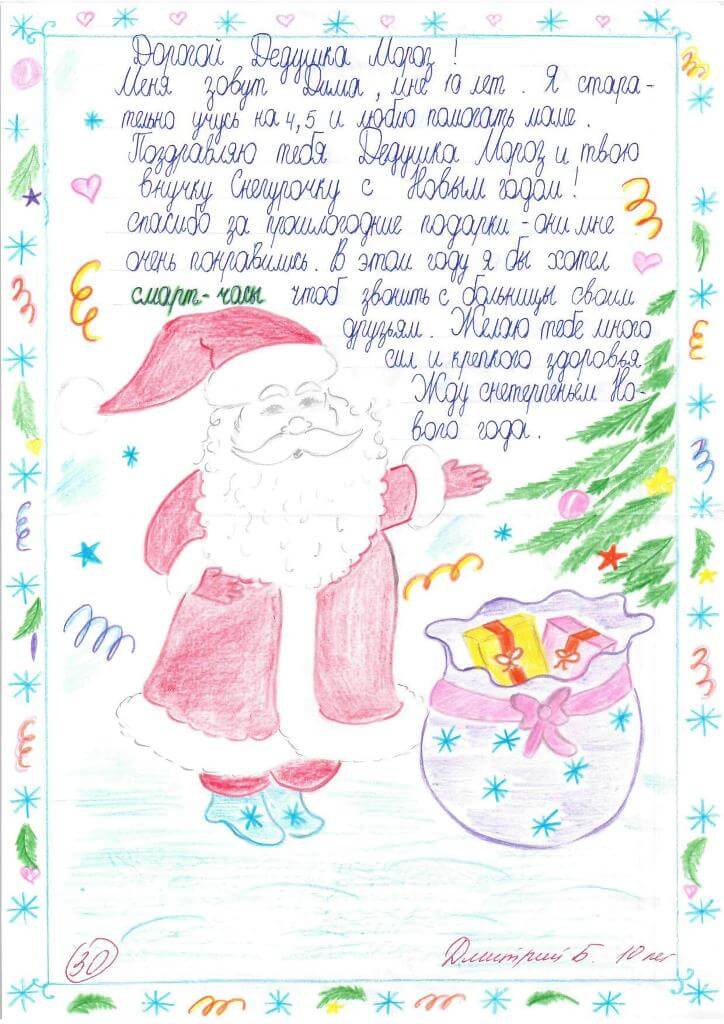 Дорогой Дедушка Мороз!
Меня зовут Дима, мне 10 лет. Я стара-
тельно учусь на 4,5 и люблю помогать маме.
Поздравляю тебя Дедушка Мороз и твою
внучку Снегурочку с Новым годом!
спасибо за прошлогодние подарки - они мне
очень понравились. В этом году я бы хотел
смарт-часы чтоб звонить с больницы своим
друзьям. Желаю тебе много
сил и крепкого здоровья
Жду снетерпеньем Но-
вого года.
30
Дмитрий Б. 10 лет